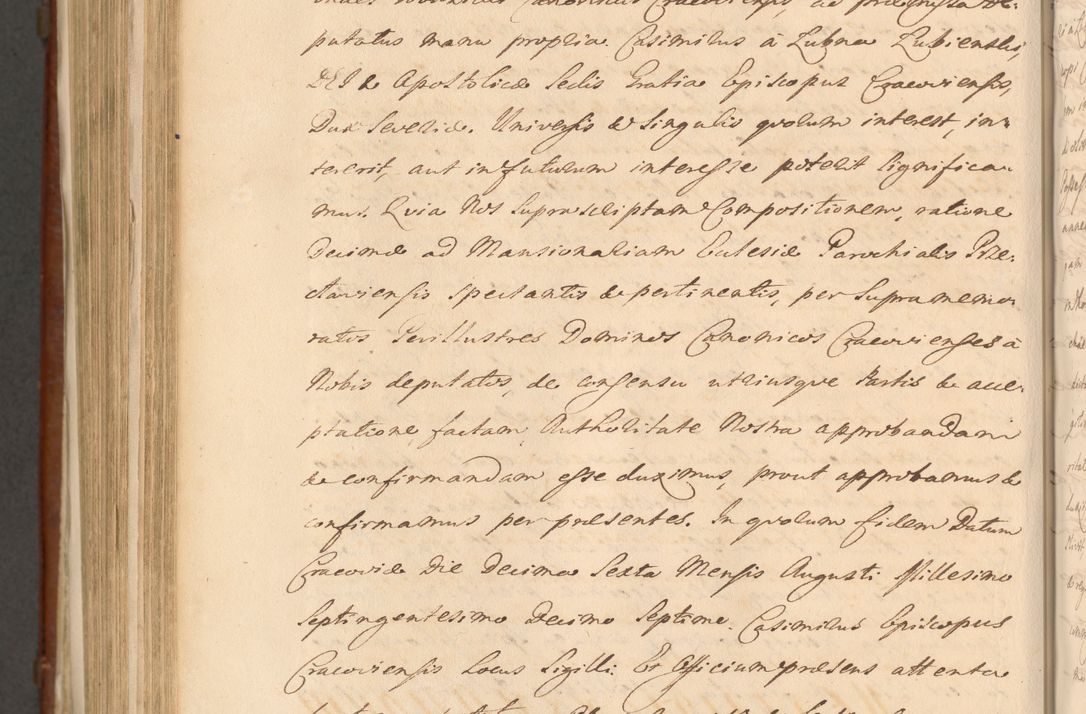 putatus manu propria. Casimirus à Lubna Lubienski,
DEI & Apostolicæ Sedis Gratia Episcopus Cracoviensis,
Dux Severiæ. Universis & Singulis quorum interest, in-
tererit, aut in futurum interesse poterit Significa-
mus. Quia Nos Suprascriptam Compositionem, ratione
Decimæ ad Mansionariam Ecclesiæ Parochialis Prze-
claviensis spectantis & pertinentis, per Supra memo-
ratos Perillustres Dominos Canonicos Cracovienses à
Nobis deputatos, de consensu utriusque Partis & acce-
ptatione factam, Authoritate Nostra approbandam
& confirmandam esse duximus, prout approbamus &
confirmamus per præsentes. In quorum fidem Datum
Cracoviæ Die Decima Sexta Mensis Augusti Millesimo
Septingentesimo Decimo Septimo. Casimirus Episcopus
Cracoviensis Locus Sigilli. Et Officium præsens attenta